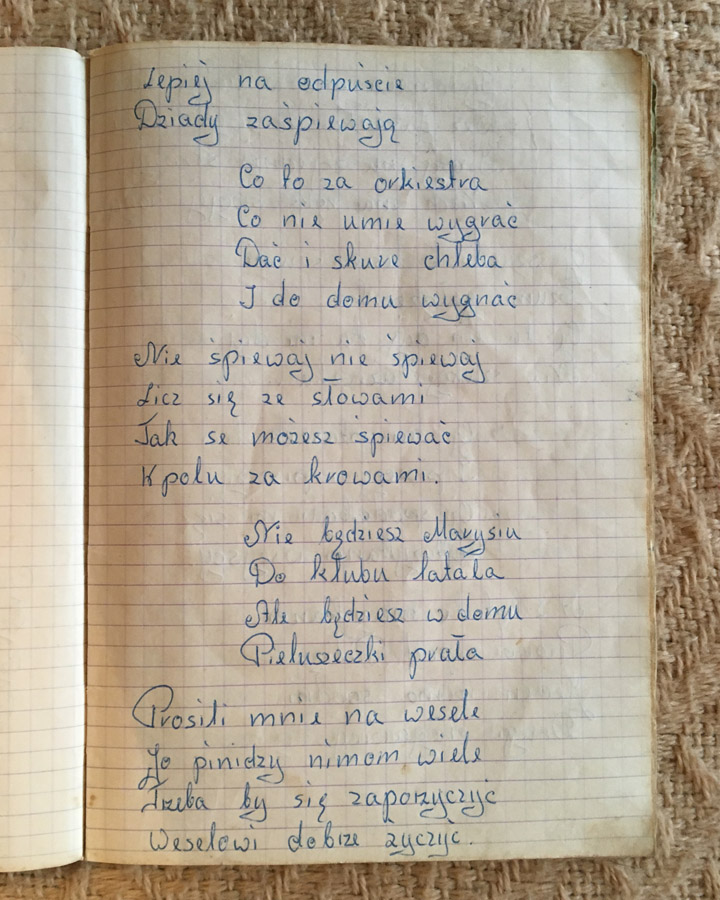 Lepiej na odpuście
Dziady zaśpiewają
Co to za orkiestra
Co nie umie wygrać
Dać i skure chleba
I do domu wygnać
Nie śpiewaj nie śpiewaj
Licz się ze słowami
Jak se możesz śpiewać
K polu za krowami.
Nie będziesz Marysiu
Do kłubu latała
Ale będziesz w domu
Pieluszeczki prała
Prosili mnie na wesele
Jo pinidzy nimom wiele
Trzeba by się zapożyczyć
Weselowi dobrze życzyć.